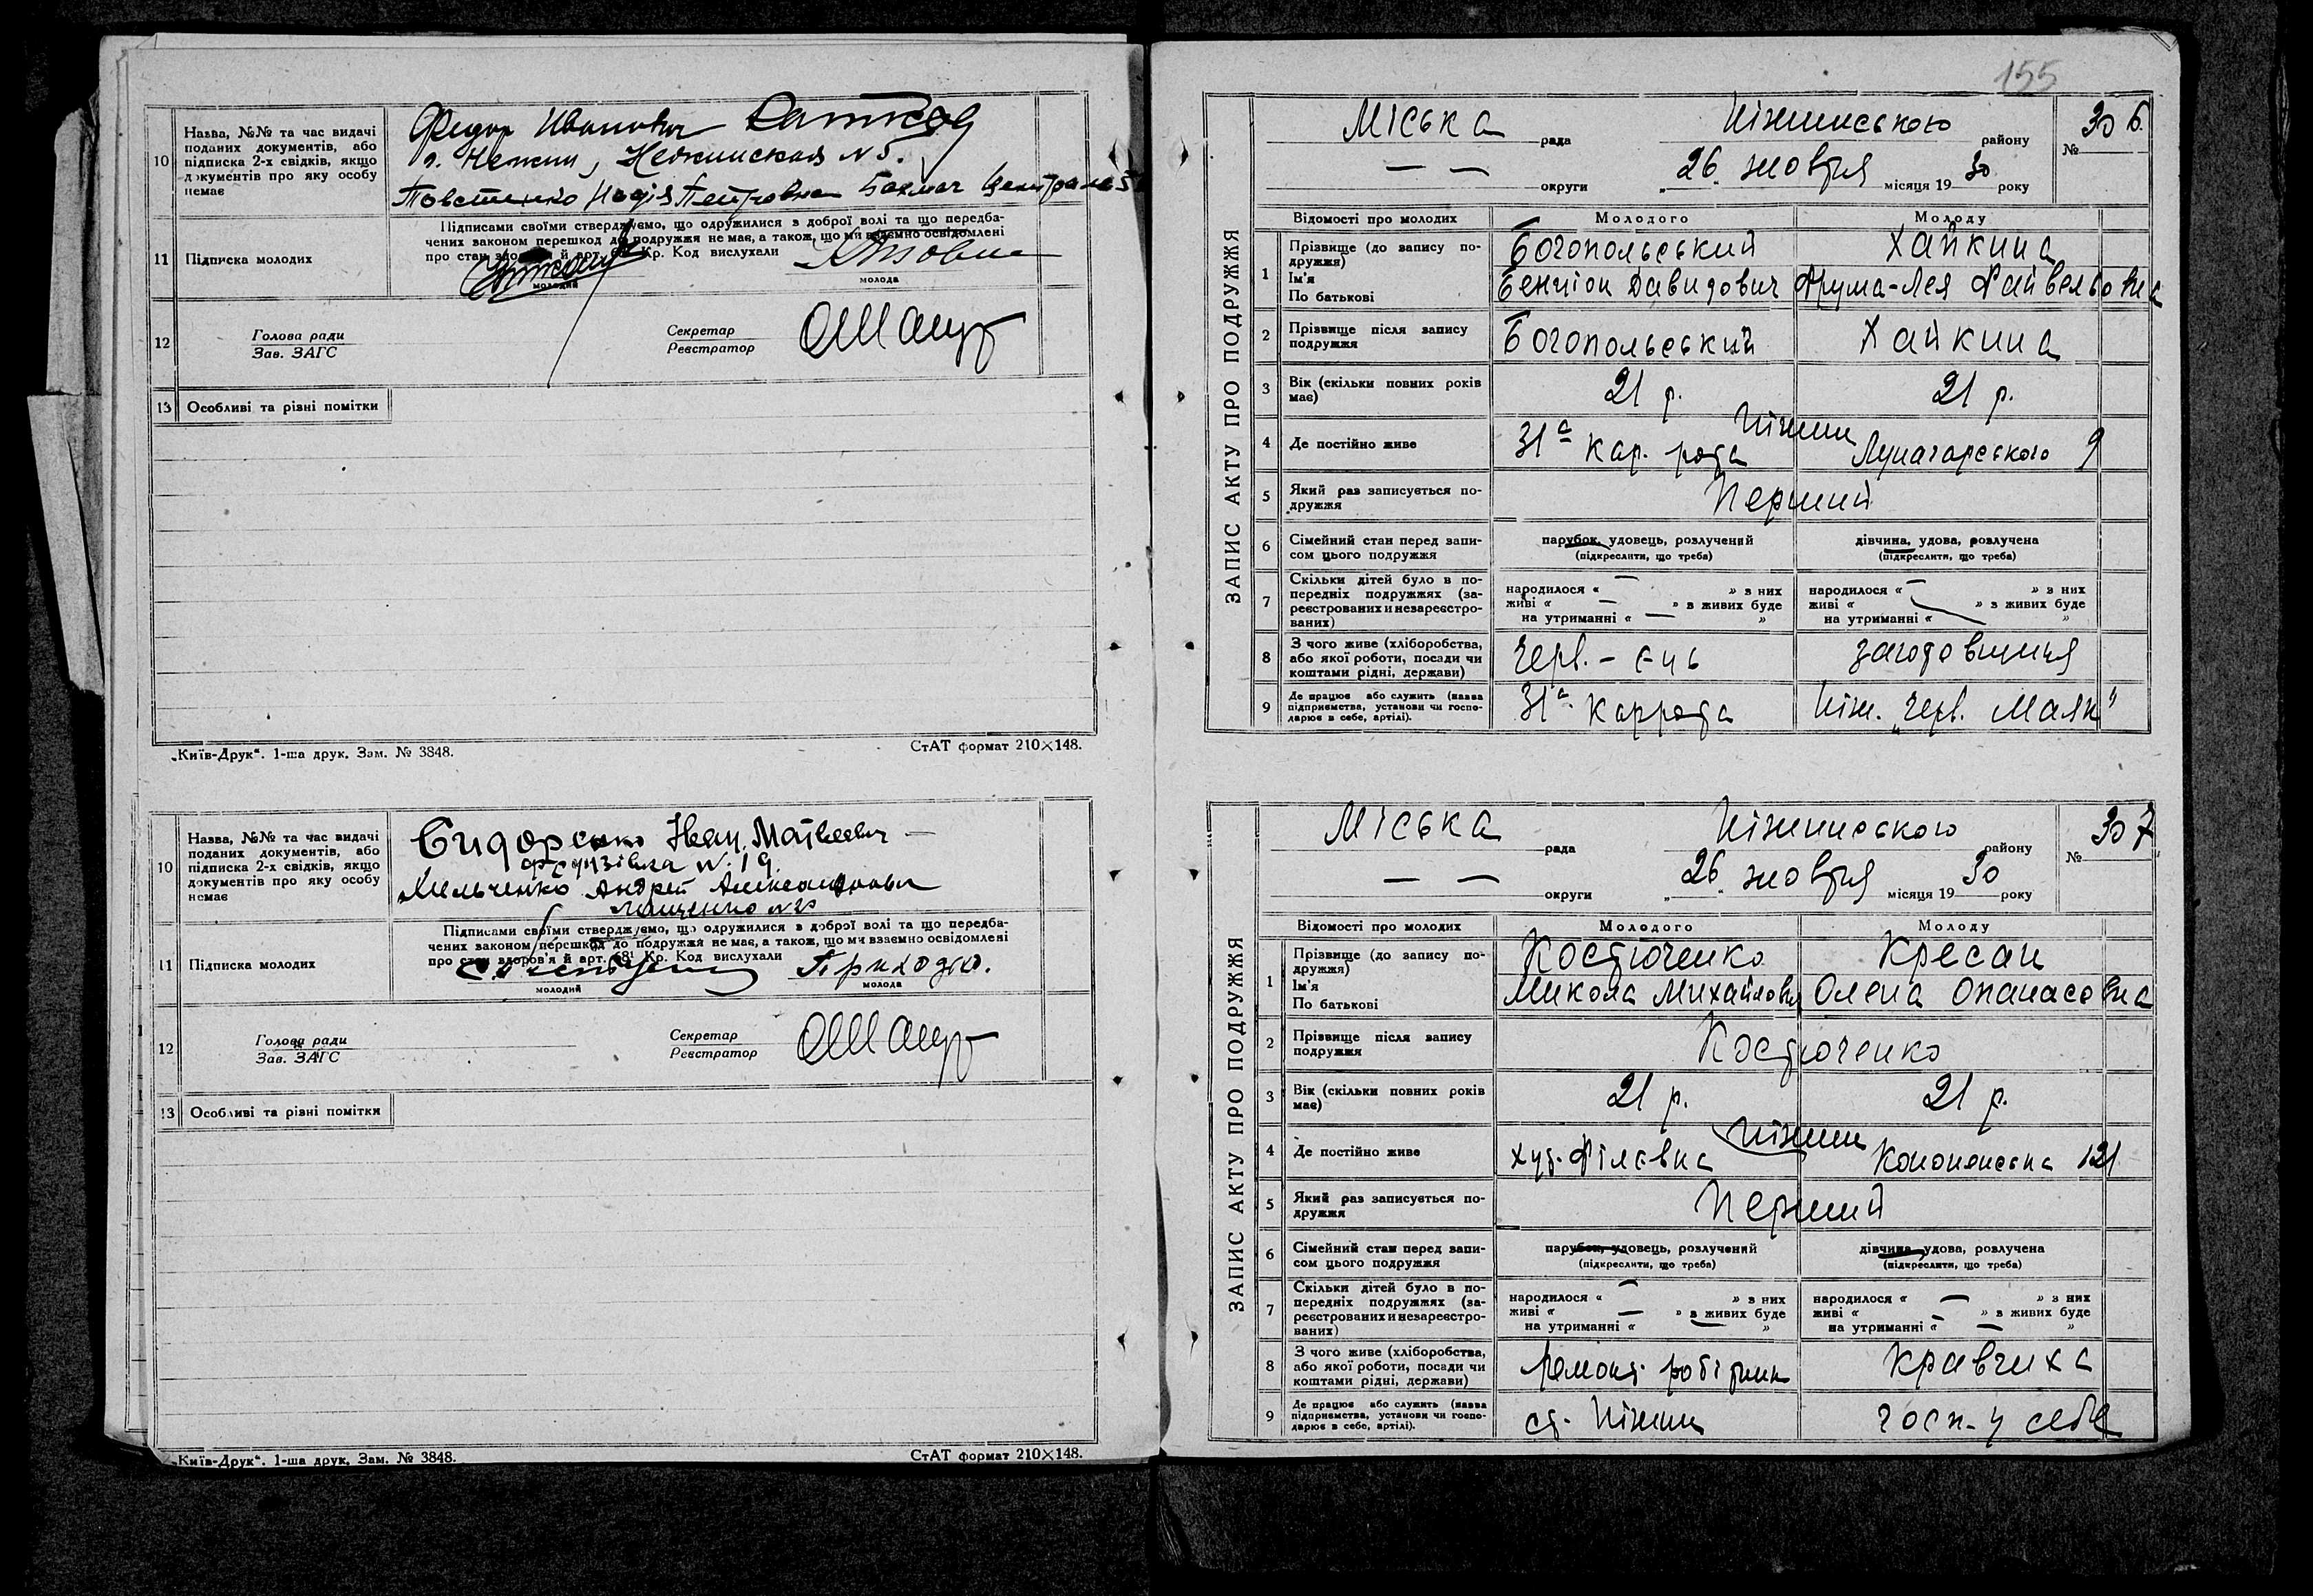 10
Назва, №№ та час видачі
поданих документів, або
підписка 2-х свідків, якщо
документів про яку особу
немає
Федор Иванович
г. Нежин, Нежинская №5.
Товстенко Надія Петровна Бахмач
11
Підписка молодих
Підписами своїми стверджуємо, що одружилися з доброї волі та що передба-
чених законом перешкод до подружжя не має, а також, що ми взаємно освідомлені
про стан здоров'я й арт. Кр. Код вислухали
молодий
молода
12
Голова ради
Зав. ЗАГС
Секретар
Реєстратор
13
Особливі та різні помітки
„Київ-Друк“. 1-ша друк. Зам. № 3848.
СтАТ формат 210×148.
10
Назва, №№ та час видачі
поданих документів, або
підписка 2-х свідків, якщо
документів про яку особу
немає
Сидоренко Иван Матвеевич
№ 19
Хильченко Андрей Александрович
11
Підписка молодих
Підписами своїми стверджуємо, що одружилися з доброї волі та що передба-
чених законом перешкод до подружжя не має, а також, що ми взаємно освідомлені
про стан здоров'я й арт. Кр. Код вислухали
Приходько.
молодий
молода
12
Голова ради
Зав. ЗАГС
Секретар
Реєстратор
13
Особливі та різні помітки
„Київ-Друк“. 1-ша друк. Зам. № 3848.
СтАТ формат 210×148.
155
ЗАПИС АКТУ ПРО ПОДРУЖЖЯ
Міська рада Ніжинського району № 306.
— — округи „26“ жовтня місяця 1930 року
Відомості про молодих
Молодого
Молоду
1
Прізвище (до запису по-
дружжя)
Ім'я
По батькові
Богопольський
Хайкина
Бенціон Давидович
Фрума-Лея Файвельовна
2
Прізвище після запису
подружжя
Богопольський
Хайкина
3
Вік (скільки повних років
має)
21 р.
21 р.
4
Де постійно живе
Ніжин
31а кар. рота
Луначарського 9
5
Який раз записується по-
дружжя
Перший
6
Сімейний стан перед запи-
сом цього подружжя
парубок, удовець, розлучений
(підкреслити, що треба)
дівчина, удова, розлучена
(підкреслити, що треба)
7
Скільки дітей було в по-
передніх подружжях (за-
реєстрованих и незареєстро-
ваних)
народилося « — » з них
живі « — » з живих буде
на утриманні « — »
народилося « — » з них
живі « » з живих буде
на утриманні « »
8
З чого живе (хліборобства,
або якої роботи, посади чи
коштами рідні, держави)
Черв. - єць
заготовщиця
9
Де працює або служить (назва
підприємства, установи чи госпо-
дарює в себе, артілі).
31а Каррота
Ніж. „Черв. Маяк“
ЗАПИС АКТУ ПРО ПОДРУЖЖЯ
Міська рада Ніжинського району № 307
— — округи „26“ жовтня місяця 1930 року
Відомості про молодих
Молодого
Молоду
1
Прізвище (до запису по-
дружжя)
Ім'я
По батькові
Костюченко
Кресан
Микола Михайлович
Олена Опанасовна
2
Прізвище після запису
подружжя
Костюченко
3
Вік (скільки повних років
має)
21 р.
21 р.
4
Де постійно живе
Ніжин
хут.
121
5
Який раз записується по-
дружжя
Перший
6
Сімейний стан перед запи-
сом цього подружжя
парубок, удовець, розлучений
(підкреслити, що треба)
дівчина, удова, розлучена
(підкреслити, що треба)
7
Скільки дітей було в по-
передніх подружжях (за-
реєстрованих и незареєстро-
ваних)
народилося « — » з них
живі « — » з живих буде
на утриманні « »
народилося « — » з них
живі « » з живих буде
на утриманні « — »
8
З чого живе (хліборобства,
або якої роботи, посади чи
коштами рідні, держави)
Ремонт. робітник
Кравчиха
9
Де працює або служить (назва
підприємства, установи чи госпо-
дарює в себе, артілі).
ст. Ніжин
госп. у себе